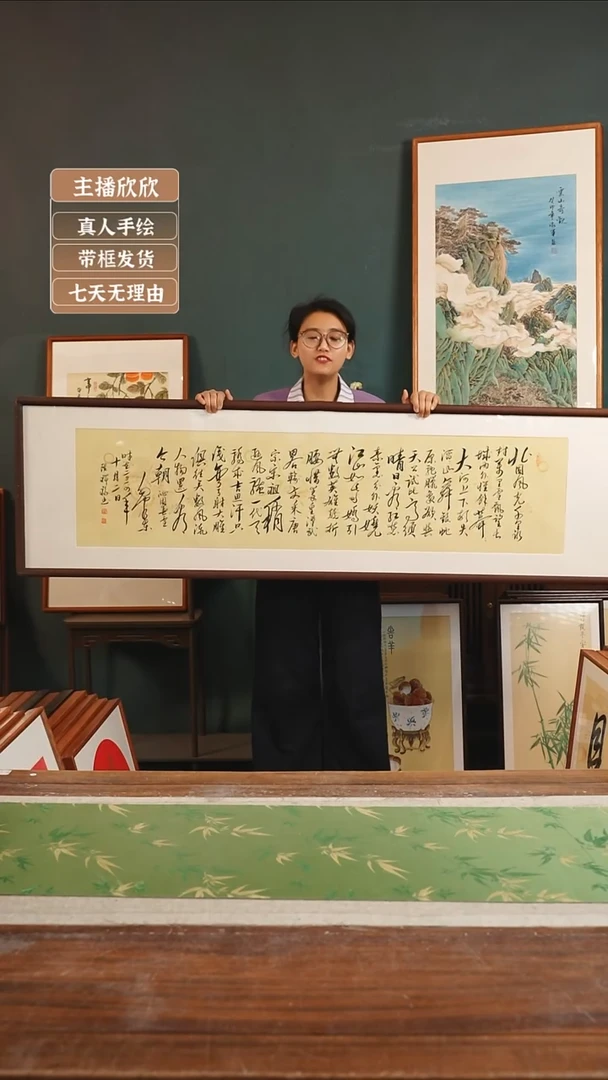 主播欣欣
真人手绘
带框发货
七天无理由
北国风光千里冰
封万里雪飘望长
城内外惟余莽莽
大河上下顿失
滔滔山舞银蛇
原驰腊象欲与
天公试比高须
晴日看红装
素裹分外妖娆
江山如此多娇引
无数英雄竞折
腰惜秦皇汉武
略输文采唐
宗宋祖稍
逊风骚一代天
骄成吉思汗只
识弯弓射大雕
俱往矣数风流
人物还看
今朝
沁园春雪
十月二日